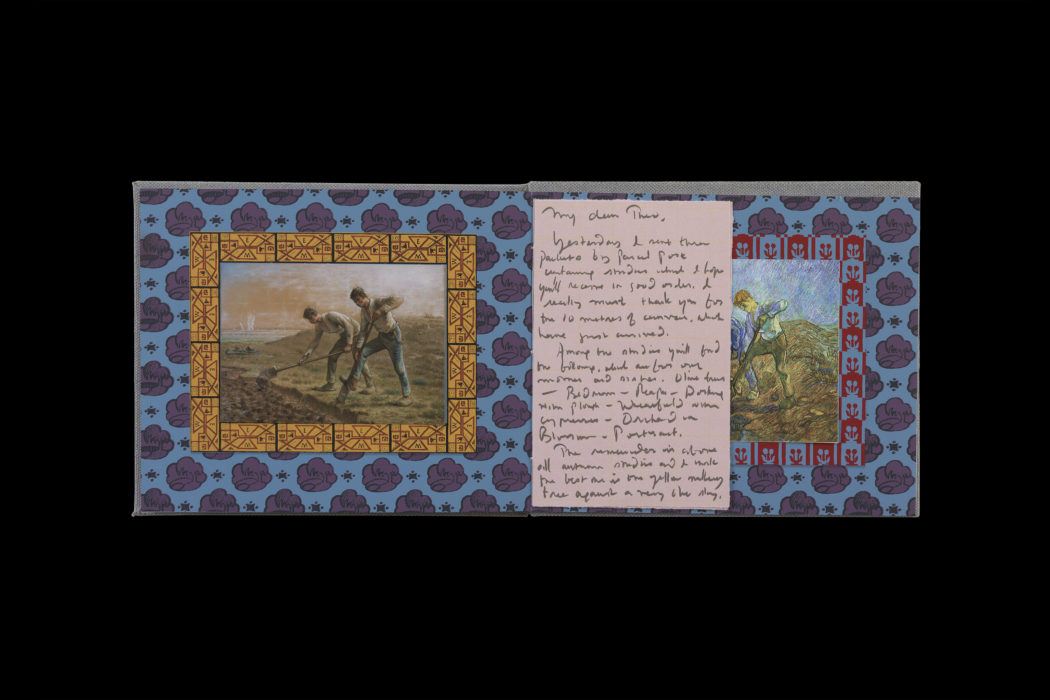 My dear Theo,
Yesterday I sent three
packets by parcel post
containing studies which I hope
you'll receive in good order. I
really must thank you for
the 10 metres of canvas, which
have just arrived.
Among the studies you'll find
the following, which are for our
mother and sister. Olive trees
– Bedroom – Reaper – Working
with plough – Wheatfield with
cypresses – Orchard in
Blossom – Portrait.
The remainder is above
all autumn studies and I think
the best one is the yellow mulberry
tree against a very blue sky.